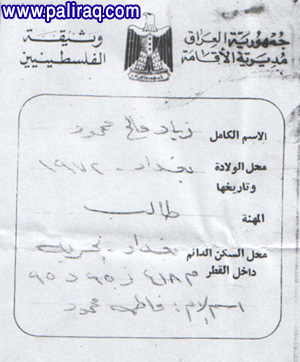 www.paliraq.com
جمهورية العراق
مديرية الأقامة
وثيقة
الفلسطينيين
الاسم الكامل زياد صالح محمود
محل الولادة بغداد - ١٩٧٢
وتاريخها
المهنة طالب
محل السكن الدائم بغداد
داخل القطر م ٤١٨ ز ٩٥ د ٩٥
اسم الام: فاطمة محمود